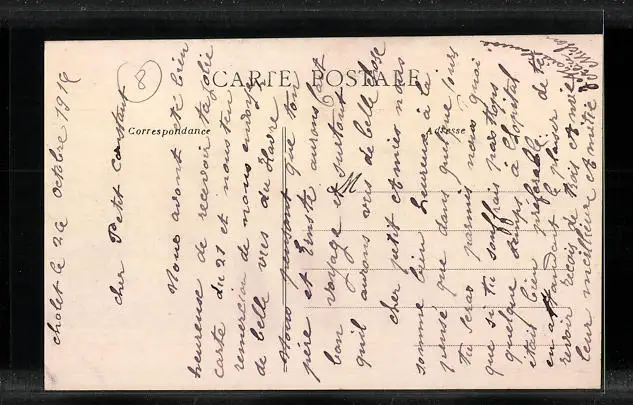 CARTE POSTALE
Correspondance
Adresse
8
cholet le 26 octobre 1919
cher Petit constant
Nous avont été bien
heureuse de recevoir ta jolie
carte du 21 et nous ten
remercion de nous envoyer
de belle vues du Havre
Nous pensont que ton
père et Ernste auront fait
bon voyage et surtout
quil auront vus de belle chose
cher petit et mies nous
somme bien heureux à la
pense que dans quelque jours
tu seras parmis nous quoi
que si tu souffrais pas toujs
quelque temps à l'hopital
était bien préferable de te
en attandant le plaisir
revoir recois de
leur meilleur amitié